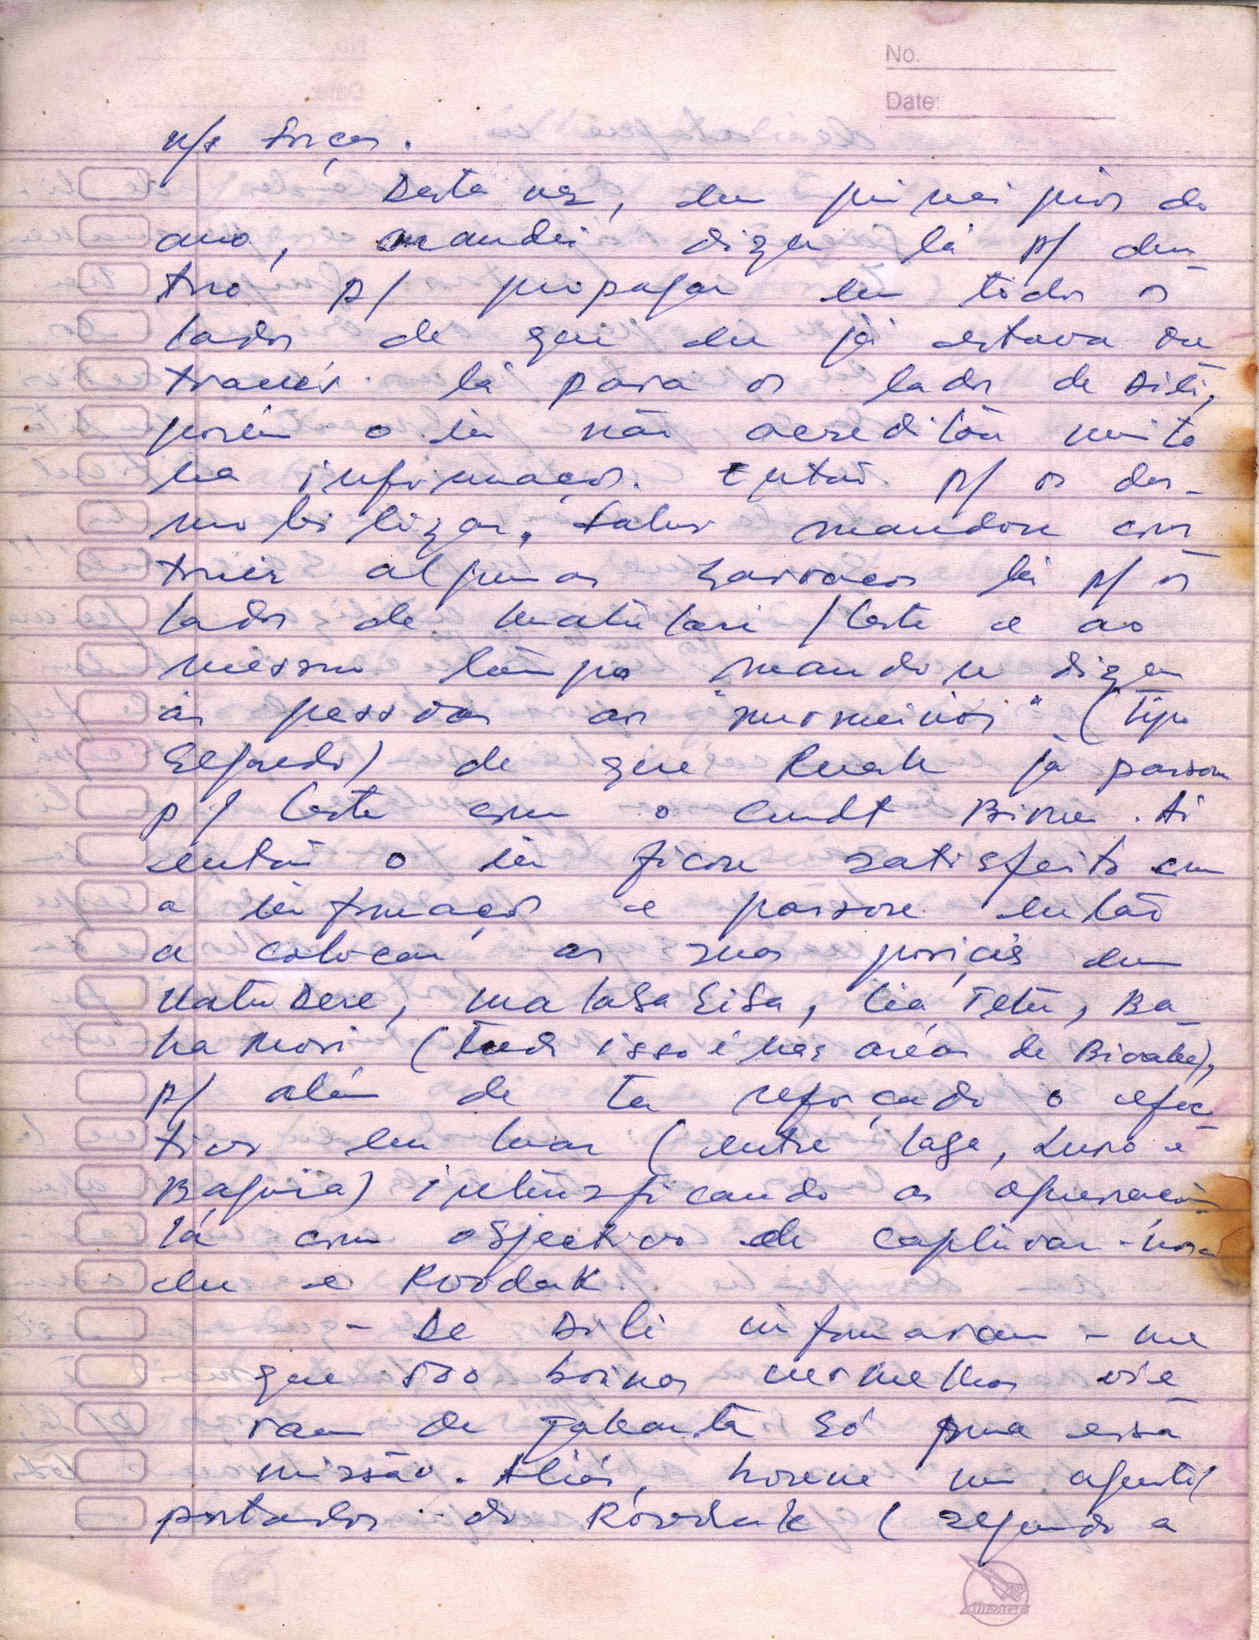 No.
Date:
n/s forças.
Desta vez, em princípios do
ano, mandei dizer lá p/ den-
tro p/ propagar em todos os
lados de que eu já estava ou
través lá para os lados de Dili,
porém o in não acreditou muito
na informação. Então p/ os des-
mobilizar, Falur mandou cons
truir algumas barracas lá p/ os
lados de Matebian/Leste e ao
mesmo tempo mandou dizer
às pessoas as "murmúrios" (tipo
Segredo) de que Ruak já passou
p/ Leste com o Cmdt Birue. Aí
então o in ficou satisfeito com
a informação e passou então
a colocar as suas posições em
Natu Dere, MalagaSiga, Lia Tetu, Ba-
ha Mori (tudo isso é nas áreas de Bicale),
p/ além de ter reforçado o efec
tivos em (entre Laga, Luro e
Baguia) intensificando as operações
lá com objectivo de captivar-nos
eu e Roodak.
- De Dili informaram-me
que 500 boinas vermelhas vie
ram de Jakarta só pra essa
missão. Aliás, houve um agente/
portador do Roodak (segundo a
MIRAGE